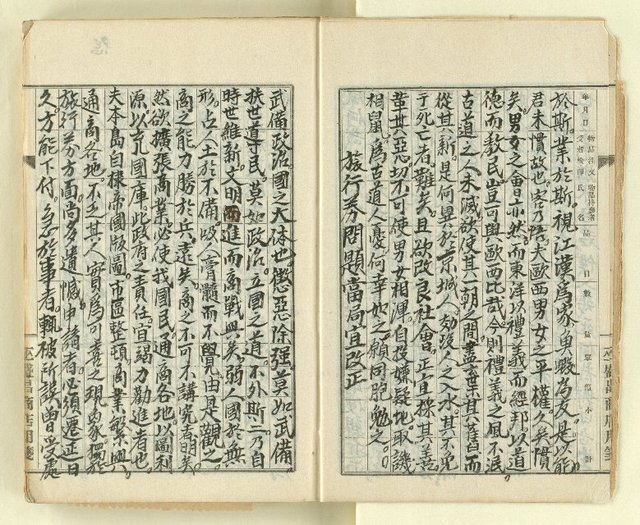 於斯業於斯視江漢為家魚蝦為友是以能
君未慣故也客乃踏大歐西男女之平權久矣慣
矣男女之會亦然而東洋以禮義而經邦以道
德而教民豈可與歐西比哉今則禮義之風不泯
古道之人未滅欲使其一朝之間盡棄其舊而
從其新是何異於京城人劾沒人之水其不免
于死亡者難矣且欲改良社會正宜採其善
革其惡切不可使男女相渾自投嫌疑地取譏
相鼠為古道人憂何幸如之願同胞勉之
旅行券問題當局宜改正
武備政治國之大体也懲惡除強莫如武備
扶世導民莫如政治立國之道不外斯二乃自
時世維新文明進而商戰興矣弱人國於無
形占人土於不備吸人膏髓而不覺由是觀之
商之能力勝於兵遠矣商之不可不講究者明矣
然欲擴張商業必使我國民通商各地以圖利
源以充國庫此政府之責任宜竭力勸進者也
夫本島自隸帝國版圖市區整頓商業繁興
通商各地不乏其人實為可喜之現象獨
旅行券方面尚多遺憾申請者必須歷五日
久方能下付急於事者輒被所誤曾受處
年月日
品目
數量
單價